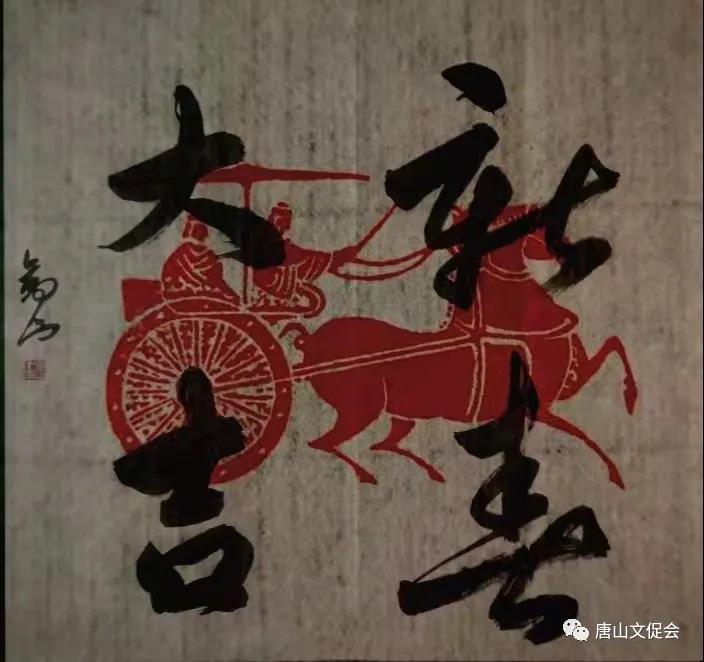 新春
大吉
唐山文促会